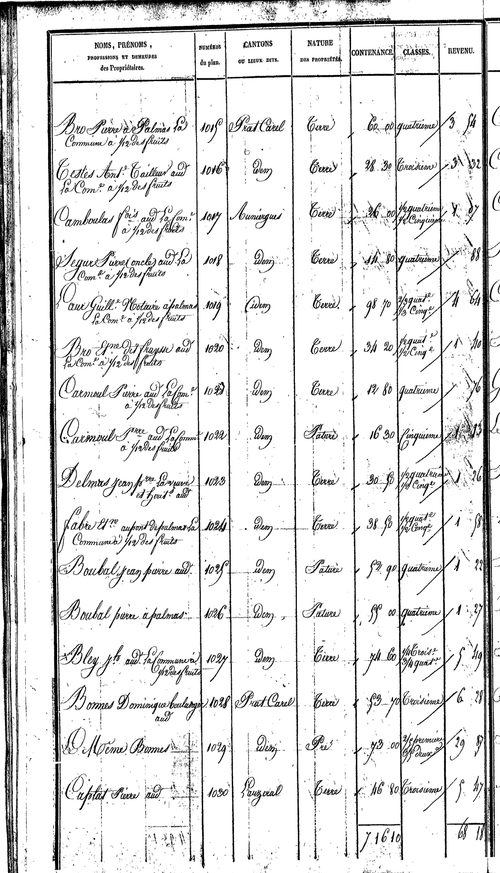 NOMS, PRÉNOMS, PROFESSIONS ET DEMEURES des Propriétaires. NUMÉROS du plan. CANTONS OU LIEUX DITS. NATURE DES PROPRIÉTÉS. CONTENANCE. CLASSES. REVENU.
Bro Pierre à Palmas La 1015 Prat Carel Terre 60 00 quatrième 3 54
Commune à 1/12 des fruits
Testes Ant.e Tailleur aud 1016 idem Terre 28 30 Troisième 3 32
La Com.e à 1/12 des fruits
Camboulas fois aud La Com.e 1017 Aumergues Terre 26 00 1/2 quatrième 1/2 Cinquième 1 07
à 1/12 des fruits
Segur Pierre oncle aud La 1018 idem Terre 14 80 quatrième 88
Com.e à 1/12 des fruits
Guill.e Notaire à palmas 1019 idem Terre 98 70 4 64
La Com.e à 1/12 des fruits
Bro Et.ne det fraysse aud 1020 idem Terre 34 20 1/2 quat.e 1/2 Cinq.e 1 40
La Com.e à 1/12 des fruits
Carmoul Pierre aud La Com.e 1021 idem Terre 12 80 quatrième 76
à 1/12 des fruits
Carmoul Pierre aud La Comm.e 1022 idem Pature 16 30 Cinquième 1 13
à 1/12 des fruits
Delmas jean p.rre La veuve 1023 idem Terre 30 50 1/2 quatrième 1/2 Cinq.e 1 26
et heret.r aud
fabre Et.ne au pont de palmas La 1024 idem Terre 38 50 1/2 quat.e 1/2 Cinq.e 1 58
Commune à 1/12 des fruits
Boubal jean pierre aud 1025 idem Pature 52 90 quatrième 1 22
Boubal pierre à palmas 1026 idem Pature 55 00 quatrième 1 27
Bley aud La Commune à 1027 idem Terre 74 60 1/4 trois.e 3/4 quat.e 5 49
1/12 des fruits
Bonnes Dominique boulanger 1028 Prat Carel Terre 53 70 Troisième 6 28
aud
Le Même Bonnes 1029 idem Pré 73 00 première 29 87
Captat Pierre aud 1030 Lauzeral Terre 46 80 Troisième 5 47
7 16 10 68 18